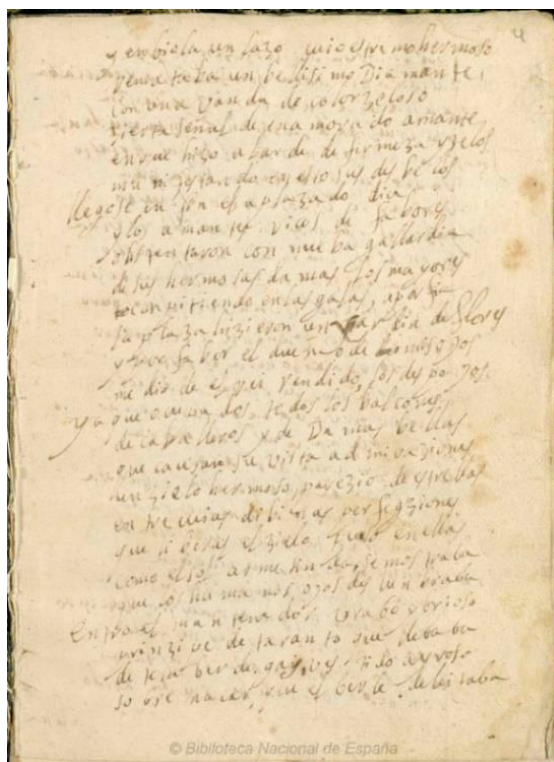 4
y embiola un lazo cuio estremo hermoso
un bellisimo Diamante
con una vanda de color zeloso
zierta señal de enamorado amante
en que hizo alarde de firmeza y zelos
en esto sus desbelos
llegose en fin el aplazado dia
y los amantes ricos de fabores
ostentaron con mucha gallardia
de sus hermosas damas los mayores
conpitiendo en las galas, a porfia
la plaza hizieron un jardin de flores
y por saber el dueño de los ojos
me dio de el rendido, los despojos
ya que ocupados todos los balcones
de caballeros y de Damas bellas
que causan su vista admiraziones
un zielo hermoso parezio de estrellas
entre cuias dibinas perfegziones
que el zielo puso en ellas
como el sol a se mostraba
que los humanos ojos deslunbraba
Entro el mantenedor, brioso
prinzipe de taranto que
de tela berde gay, vestido ayroso
sobre nacer, que el berle
© Biblioteca Nacional de España